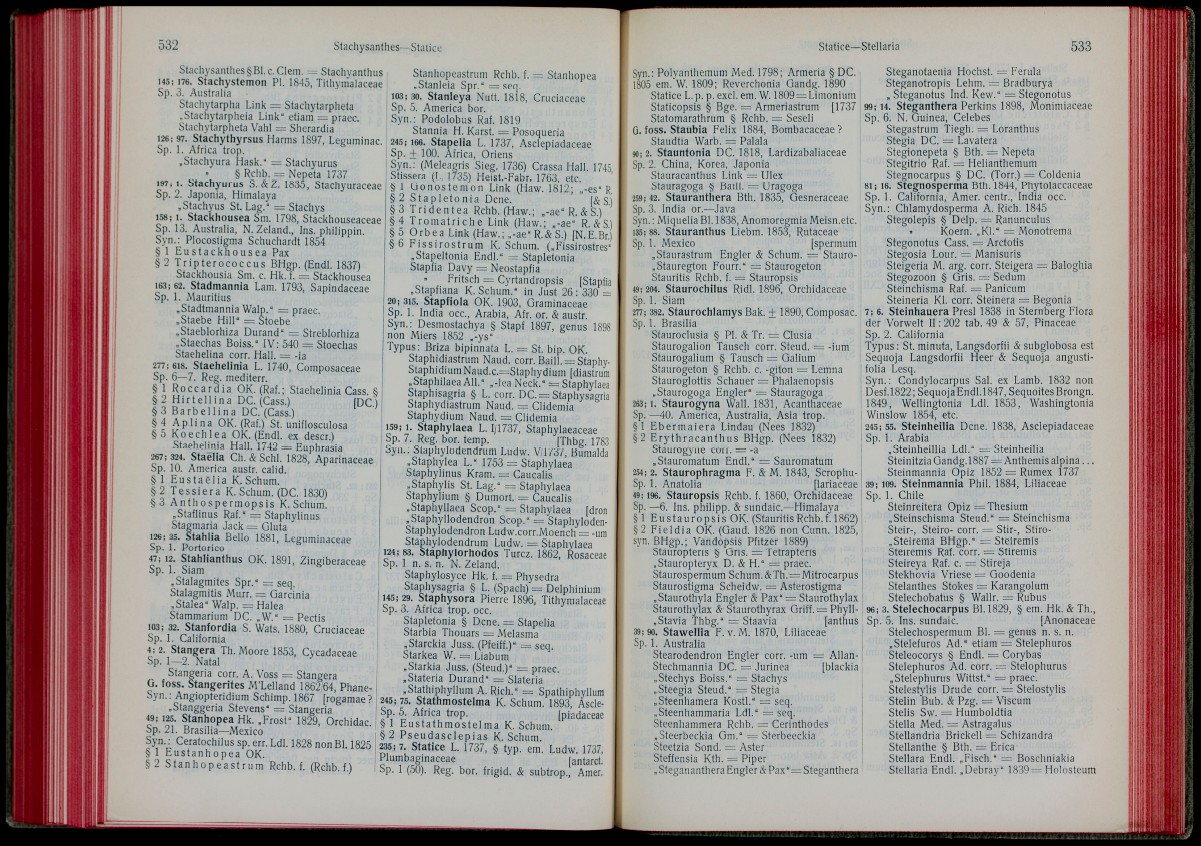 532
Stachysanthes—Statice
Stachysanthes § Bl. c. Clem. = Stachyanthus
145; 176. Stachystemon Pl. 1845, Tithymalaceae
Sp. 3. Australia
Stachytarpha Link = Stachytarpheta
„Stachytarpheia Link“ etiam = praec.
Stachytarpheta Vahl = Sherardia
126; 97. Stachythyrsus Harms 1897, Leguminac.
Sp. 1. Africa trop.
„Stachyura Hask.“ = Stachyurus
„ § Rchb. = Nepeta 1737
197; 1. Stachyurus S. & Z. 1835, Stachyuraceae
Sp. 2. Japonia, Himalaya
„Stachyus St. Lag.“ = Stachys
158; 1. Stackhousea Sm. 1798, Stackhouseaceae
Sp. 13. Australia, N. Zeland., Ins. philippin.
Syn.: Plocostigma Schuchardt 1854
§ 1 Eustackhousea Pax
§ 2 Tripterococcus BHgp. (Endl. 1837)
Stackhousia Sm. c. Hk. f. = Stackhousea
163; 62. Stadmannia Lam. 1793, Sapindaceae
Sp. 1. Mauritius
„Stadtmannia Walp.“ = praec.
„Staebe Hill“ = Stoebe
„Staeblorhiza Durand“ = Streblorhiza
„Staechas Boiss.“ IV: 540 = Stoechas
Staehelina corr. Hall. = -ia
277; 618. Staehelinia L. 1740, Composaceae
Sp. 6—7. Reg. mediterr.
§ 1 Roccardia OK. (Raf.; Staehelinia Cass. §
§ 2 Hirtellina DC. (Cass.) [DC.)
§ 3 Barbellina DC. (Cass.)
§ 4 Aplina OK. (Raf.) St. uniflosculosa
§ 5 Koechlea OK. (Endl. ex descr.)
Staehelinia Hall. 1742 = Euphrasia
267; 324. Staëlia Ch. & Schl. 1828, Aparinaceae
Sp. 10. America austr. calid.
§ 1 Eustaëlia K. Schum.
§ 2 Tessiera K. Schum. (DC. 1830)
§ 3 Anthospermopsis K. Schum.
„Staflinus Raf.“ = Staphylinus
Stagmaria Jack = Gluta
126; 35. Stahlia Bello 1881, Leguminaceae
Sp. 1. Portorico
47; 12. Stahlianthus OK. 1891, Zingiberaceae
Sp. 1. Siam
„Stalagmites Spr.“ = seq.
Stalagmitis Murr. = Garcinia
„Stalea“ Walp. = Halea
Stammarium DC. „W.“ = Pectis
103; 32. Stanfordia S. Wats. 1880, Cruciaceae
Sp. 1. California
4; 2. Stangera Th. Moore 1853, Cycadaceae
Sp. 1—2. Natal
Stangeria corr. A. Voss = Stangera
G. foss. Stangerites M'Lelland 1862/64, Phane-
Syn.: Angiopteridium Schimp. 1867 [rogamae?
„Stanggeria Stevens“ = Stangeria
49; 125. Stanhopea Hk. „Frost“ 1829, Orchidac.
Sp. 21. Brasilia—Mexico
Syn.: Ceratochilus sp. err. Ldl. 1828 non Bl. 1825
§ 1 Eustanhopea OK.
§ 2 Stanhopeastrum Rchb. f. (Rchb. f.)
Stanhopeastrum Rchb. f. = Stanhopea
„Stanleia Spr.“ = seq.
103; 30. Stanleya Nutt. 1818, Cruciaceae
Sp. 5. America bor.
Syn.: Podolobus Raf. 1819
Stannia H. Karst. = Posoqueria
245; 166. Stapelia L. 1737, Asclepiadaceae
Sp. ± 100. Africa, Oriens
Syn.: (Meleagris Sieg. 1736) Crassa Hall. 1745,
Stissera (L. 1735) Heist.-Fabr. 1763, etc.
§ 1 Gonostemon Link (Haw. 1812; „-es“ R.
§ 2 Stapletonia Dcne. [& S.)
§ 3 Tridentea Rchb. (Haw.; „-ae“ R. & S.)
§ 4 Tromatriche Link (Haw.; „-ae“ R. & S.)
§ 5 Orbea Link (Haw.; „-ae“ R. & S.) [N. E. Br.)
§ 6 Fissirostrum K. Schum. („Fissirostres“
„Stapeltonia Endl.“ = Stapletonia
Stapfia Davy = Neostapfia
„ Fritsch = Cyrtandropsis [Stapfia
„Stapfiana K. Schum.“ in Just 26: 330 =
20; 315. Stapfiola OK. 1903, Graminaceae
Sp. 1. India occ., Arabia, Afr. or. & austr.
Syn.: Desmostachya § Stapf 1897, genus 1898
non Miers 1852 „-ys“
Typus: Briza bipinnata L. = St. bip. OK.
Staphidiastrum Naud. corr. Baill. = Staphy-
Staphidium Naud. c. = Staphydium [diastrum
„Staphilaea All.“ „-lea Neck.“ = Staphylaea
Staphisagria § L. corr. DC. = Staphysagria
Staphydiastrum Naud. = Clidemia
Staphydium Naud. = Clidemia
159; 1. Staphylaea L. I/1737, Staphylaeaceae
Sp. 7. Reg. bor. temp. [Thbg. 1783
Syn.: Staphylodendrum Ludw. V/1737, Bumalda
„Staphylea L.“ 1753 = Staphylaea
Staphylinus Kram. = Caucalis
„Staphylis St. Lag.“ = Staphylaea
Staphylium § Dumort. = Caucalis
„Staphyllaea Scop.“ = Staphylaea [dron
„Staphyllodendron Scop.“ = Staphyloden-
Staphylodendron Ludw. corr. Moench = -um
Staphylodendrum Ludw. = Staphylaea
124; 83. Staphylorhodos Turcz. 1862, Rosaceae
Sp. 1 n. s. n. N. Zeland.
Staphylosyce Hk. f. = Physedra
Staphysagria § L. (Spach) = Delphinium
145; 29. Staphysora Pierre 1896, Tithymalaceae
Sp. 3. Africa trop. occ.
Stapletonia § Dcne. = Stapelia
Starbia Thouars = Melasma
„Starckia Juss. (Pfeiff.)“ = seq.
Starkea W. = Liabum
„Starkia Juss. (Steud.)“ = praec.
„Stateria Durand“ = Slateria
„Stathiphyllum A. Rich.“ = Spathiphyllum
245; 75. Stathmostelma K. Schum. 1893, Ascle-
Sp. 5. Africa trop. [piadaceae
§ 1 Eustathmostelma K. Schum.
§ 2 Pseudasclepias K. Schum.
235; 7. Statice L. 1737, § typ. em. Ludw. 1737,
Plumbaginaceae [antarct.
Sp. 1 (50). Reg. bor. frigid. & subtrop., Amer.
Statice—Stellaria
533
Syn.: Polyanthemum Med. 1798; Armeria § DC.
1805 em. W. 1809; Reverchonia Gandg. 1890
Statice L. p. p. excl. em. W. 1809 = Limonium
Staticopsis § Bge. = Armeriastrum [1737
Statomarathrum § Rchb. = Seseli
G. foss. Staubia Felix 1884, Bombacaceae?
Staudtia Warb. = Palala
90; 2. Stauntonia DC. 1818, Lardizabaliaceae
Sp. 2. China, Korea, Japonia
Stauracanthus Link = Ulex
Stauragoga § Baill. = Uragoga
259; 42. Stauranthera Bth. 1835, Gesneraceae
Sp. 3. India or.—Java
Syn.: Miquelia Bl. 1838, Anomoregmia Meisn. etc.
135; 88. Stauranthus Liebm. 1853, Rutaceae
Sp. 1. Mexico [spermum
„Staurastrum Engler & Schum. = Stauro-
„Stauregton Fourr.“ = Staurogeton
Stauritis Rchb. f. = Stauropsis
49; 204. Staurochilus Ridl. 1896, Orchidaceae
Sp. 1. Siam
277; 382. Staurochlamys Bak. ± 1890, Composac.
Sp. 1. Brasilia
Stauroclusia § Pl. & Tr. = Clusia
Staurogalion Tausch corr. Steud. = -ium
Staurogalium § Tausch = Galium
Staurogeton § Rchb. c. -giton = Lemna
Stauroglottis Schauer = Phalaenopsis
„Staurogoga Engler“ = Stauragoga
263; 1. Staurogyna Wall. 1831, Acanthaceae
Sp. —40. America, Australia, Asia trop.
§ 1 Ebermaiera Lindau (Nees 1832)
§ 2 Erythracanthus BHgp. (Nees 1832)
Staurogyne corr. = -a
„Stauromatum Endl.“ = Sauromatum
254; 2. Staurophragma F. & M. 1843, Scrophu-
Sp. 1. Anatolia [lariaceae
49; 196. Stauropsis Rchb. f. 1860, Orchidaceae
Sp. —6. Ins. philipp. & sundaic.—Himalaya
§ 1 Eustauropsis OK. (Stauritis Rchb. f. 1862)
§ 2 Fieldia OK. (Gaud. 1826 non Cunn. 1825,
syn. BHgp.; Vandopsis Pfitzer 1889)
Stauropteris § Gris. = Tetrapteris
„Stauropteryx D. & H.“ = praec.
Staurospermum Schum. & Th. = Mitrocarpus
Staurostigma Scheidw. = Asterostigma
„Staurothyla Engler & Pax“ = Staurothylax
Staurothylax & Staurothyrax Griff. = Phyll-
„Stavia Thbg.“ = Staavia [anthus
39; 90. Stawellia F. v. M. 1870, Liliaceae
Sp. 1. Australia
Stearodendron Engler corr. -um = Allan-
Stechmannia DC. = Jurinea [blackia
„Stechys Boiss.“ = Stachys
„Steegia Steud.“ = Stegia
„Steenhamera Kostl.“ = seq.
„Steenhammaria Ldl.“ = seq.
Steenhammera Rchb. = Cerinthodes
„Steerbeckia Gm.“ = Sterbeeckia
Steetzia Sond. = Aster
Steffensia Kth. = Piper
„Stegananthera Engler & Pax“ = Steganthera
Steganotaenia Hochst. = Ferula
Steganotropis Lehm. = Bradburya
„Steganotus Ind. Kew.“ = Stegonotus
99; 14. Steganthera Perkins 1898, Monimiaceae
Sp. 6. N. Guinea, Celebes
Stegastrum Tiegh. = Loranthus
Stegia DC. = Lavatera
Stegionepeta § Bth. = Nepeta
Stegitrio Raf. = Helianthemum
Stegnocarpus § DC. (Torr.) = Coldenia
81; 16. Stegnosperma Bth. 1844, Phytolaccaceae
Sp. 1. California, Amer. centr., India occ.
Syn.: Chlamydosperma A. Rich. 1845
Stegolepis § Delp. = Ranunculus
„ Koern. „Kl.“ = Monotrema
Stegonotus Cass. = Arctotis
Stegosia Lour. = Manisuris
Steigeria M. arg. corr. Steigera = Baloghia
Stegozoon § Gris. = Sedum
Steinchisma Raf. = Panicum
Steineria Kl. corr. Steinera = Begonia
7; 6. Steinhauera Presl 1838 in Sternberg Flora
der Vorwelt II: 202 tab. 49 & 57, Pinaceae
Sp. 2. California
Typus: St. minuta, Langsdorfii & subglobosa est
Sequoja Langsdorfii Heer & Sequoja angusti-
folia Lesq.
Syn.: Condylocarpus Sal. ex Lamb. 1832 non
Desf. 1822; Sequoja Endl. 1847, Sequoites Brongn.
1849, Wellingtonia Ldl. 1853, Washingtonia
Winslow 1854, etc.
245; 55. Steinheilia Dcne. 1838, Asclepiadaceae
Sp. 1. Arabia
„Steinheillia Ldl.“ = Steinheilia
Steinitzia Gandg. 1887 = Anthemis alpina...
Steinmannia Opiz 1852 = Rumex 1737
39; 109. Steinmannia Phil. 1884, Liliaceae
Sp. 1. Chile
Steinreitera Opiz = Thesium
„Steinschisma Steud.“ = Steinchisma
Steir-, Steiro- corr. = Stir-, Stiro-
„Steirema BHgp.“ = Steiremis
Steiremis Raf. corr. = Stiremis
Steireya Raf. c. = Stireja
Stekhovia Vriese = Goodenia
Stelanthes Stokes = Karangolum
Stelechobatus § Wallr. = Rubus
96; 3. Stelechocarpus Bl. 1829, § em. Hk. & Th.,
Sp. 5. Ins. sundaic. [Anonaceae
Stelechospermum Bl. = genus n. s. n.
„Stelefuros Ad.“ etiam = Stelephuros
Steleocorys § Endl. = Corybas
Stelephuros Ad. corr. = Stelophurus
„Stelephurus Wittst.“ = praec.
Stelestylis Drude corr. = Stelostylis
Stelin Bub. & Pzg. = Viscum
Stelis Sw. = Humboldtia
Stella Med. = Astragalus
Stellandria Brickell = Schizandra
Stellanthe § Bth. = Erica
Stellara Endl. „Fisch.“ = Boschniakia
Stellaria Endl. „Debray“ 1839 = Holosteum